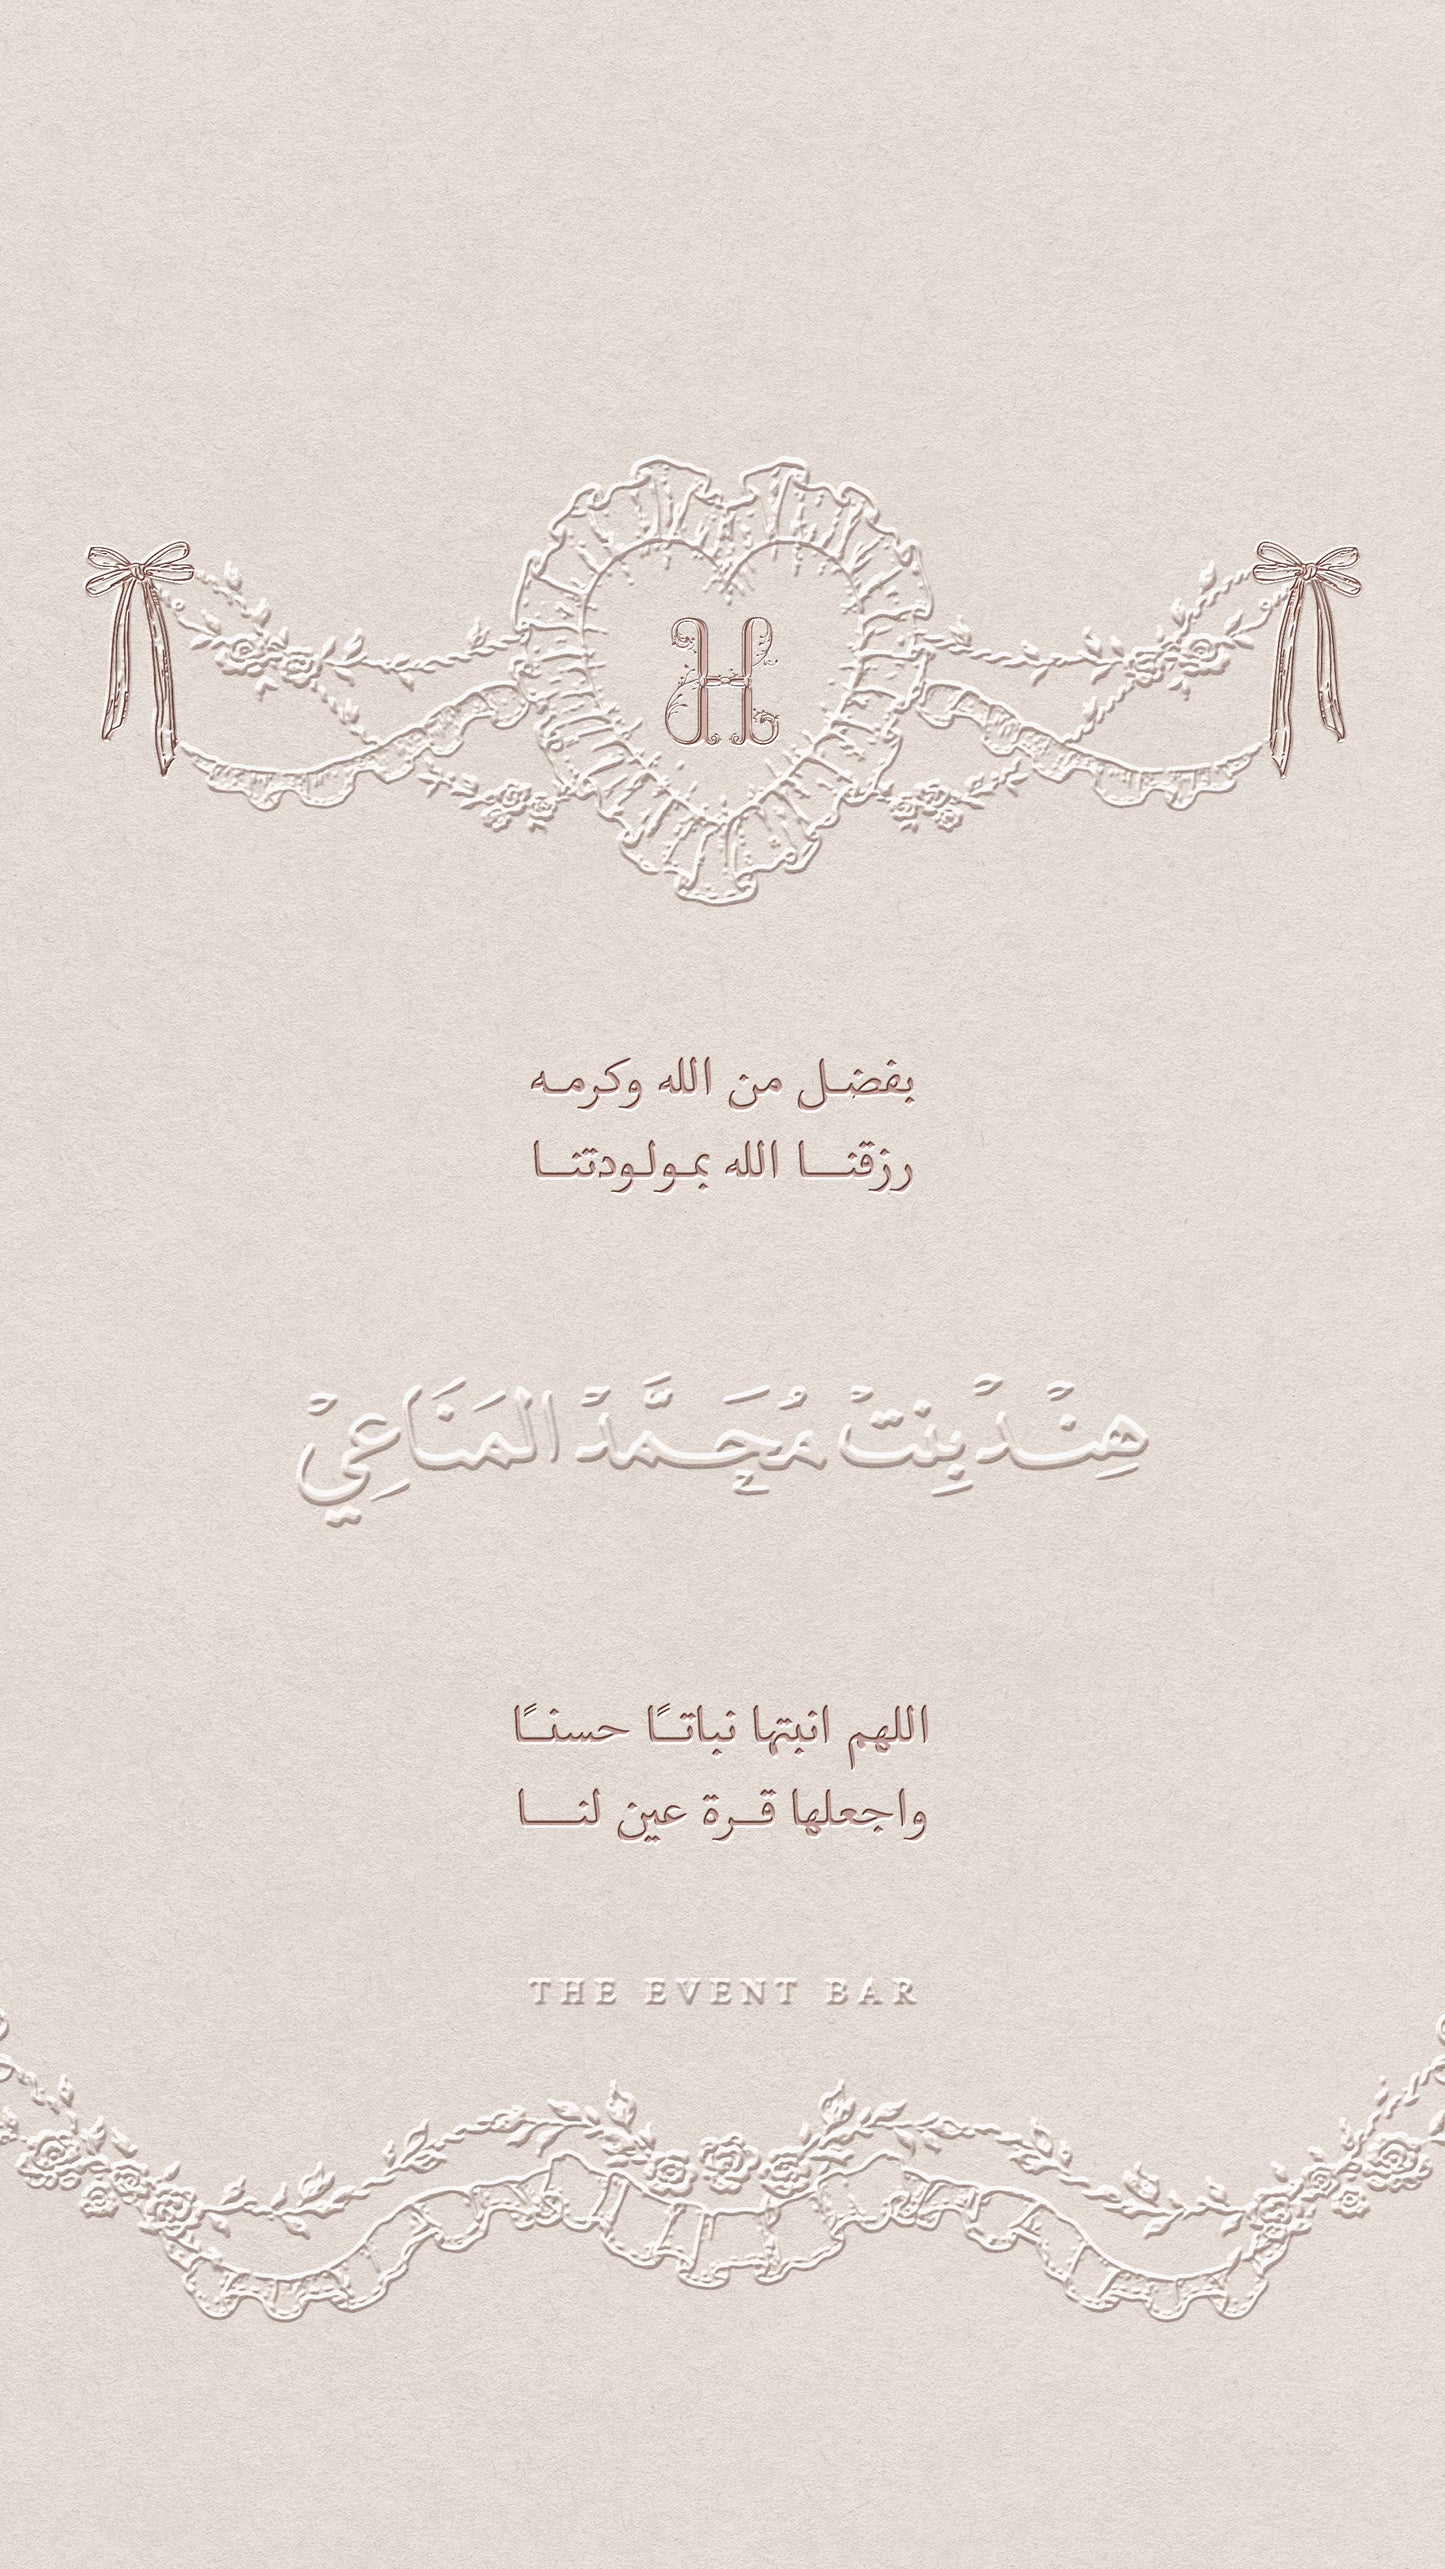 H
بفضل من الله وكرمه
رزقنا الله بمولودتنا
هِنْدْ بِنتْ مُحَمَّدْ المَنَاعِيْ
اللهم انبتها نباتًا حسنًا
واجعلها قرة عين لنا
THE EVENT BAR